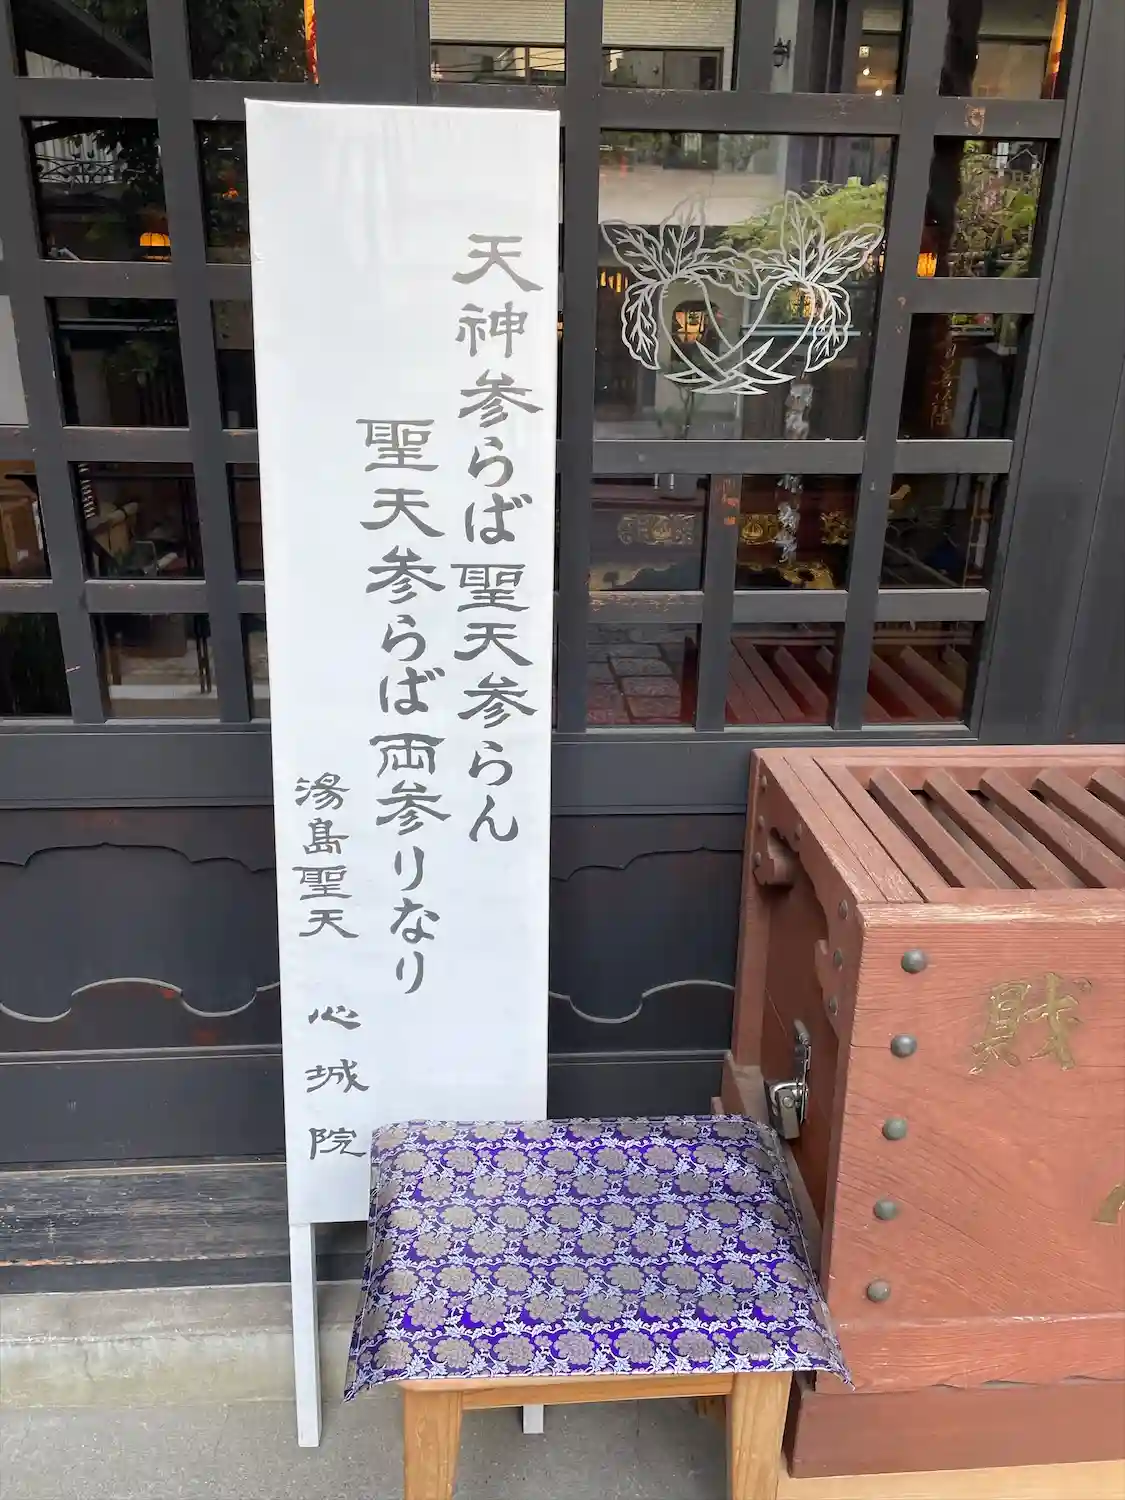 天神参らば聖天参らん
聖天参らば両参りなり
湯島聖天　心城院
財